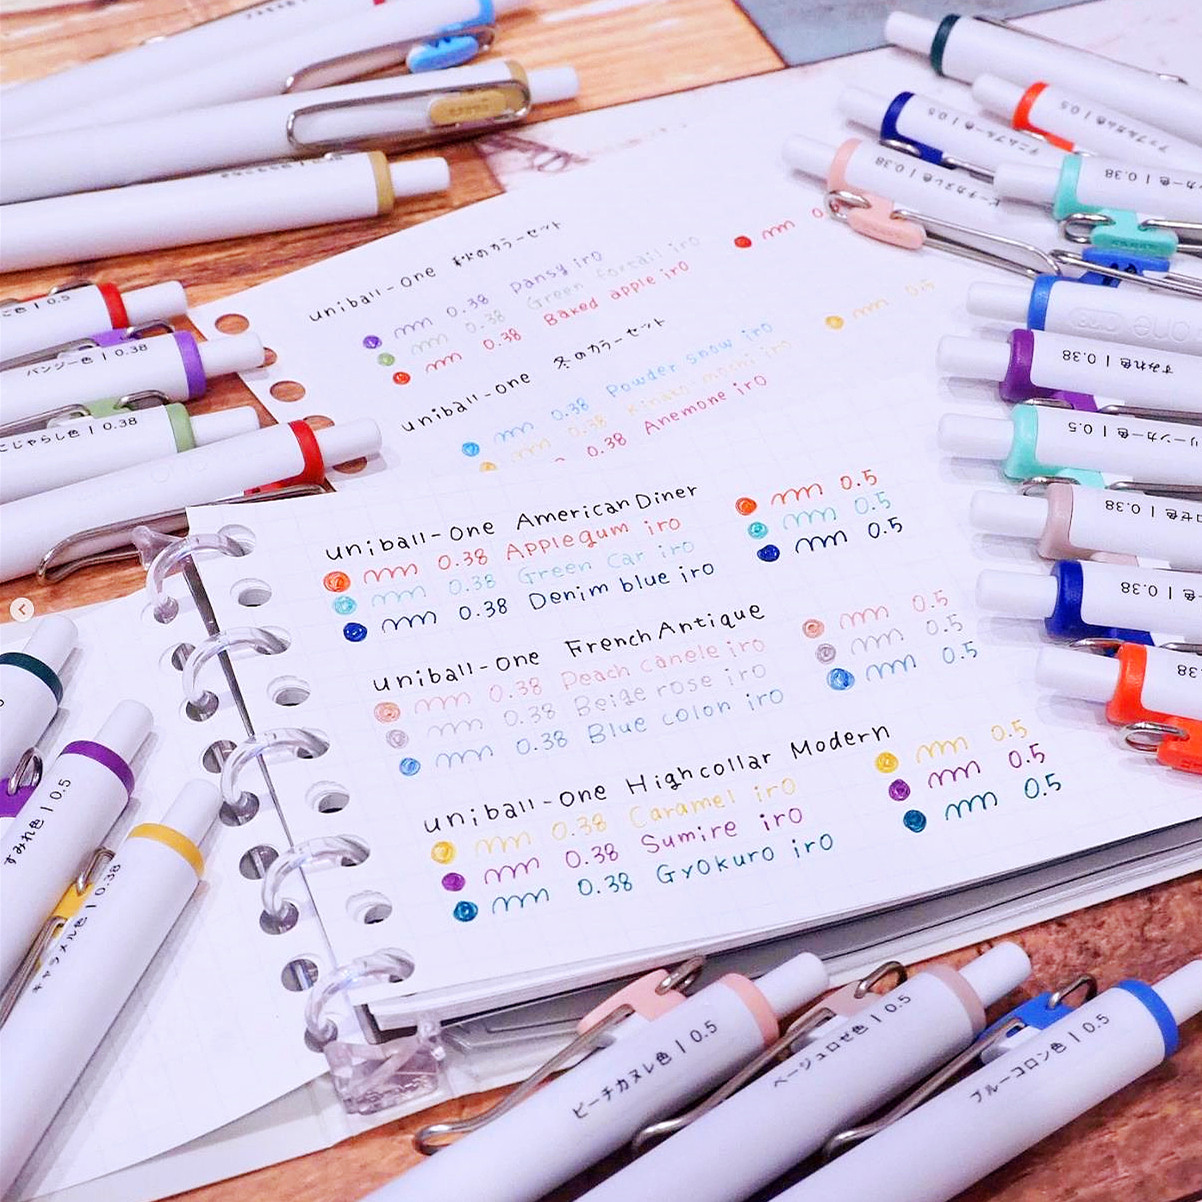 uniball-one 秋のカラーセット
0.38 pansy iro
0.38 Green Foxtail iro
0.38 Baked apple iro
uniball-one 冬のカラーセット
0.38 Powder snow iro
0.38 Kinako mochi iro
0.5
0.38 Anemone iro
uniball-one American Diner
0.38 Applegum iro 0.5
0.38 Green Car iro 0.5
0.38 Denim blue iro 0.5
uniball-one French Antique
0.38 Peach canele iro 0.5
0.38 Beige rose iro 0.5
0.38 Blue colon iro 0.5
uniball-one Highcollar Modern
0.38 Caramel iro 0.5
0.38 Sumire iro 0.5
0.38 Gyokuro iro 0.5
0.5
パンジー色 | 0.38
こじゃらし色 | 0.38
すみれ色 | 0.5
キャラメル色 | 0.38
ピーチカヌレ色 | 0.5
ベージュロゼ色 | 0.5
ブルーコロン色 | 0.5
デニムブルー色 | 0.5
アップルガム色 | 0.5
ピーチカヌレ色 | 0.38
カー色 | 0.38
one
すみれ色 | 0.38
リーンカー色 | 0.5
ロゼ色 | 0.38
0.38
0.38